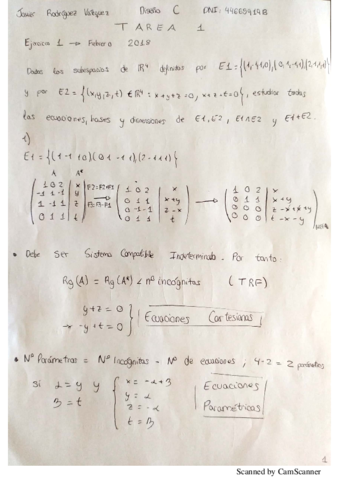 Javier Rodríguez Vázquez Diseño C DNI: 44660414B
TAREA 1
Ejercicio 1 → Febrero 2018
Dados los subespacios de R⁴ definidos por E1={(1,-1,1,0),(0,1,-1,1),(2,-1,1,1)}
y por E2={(x,y,z,t) ∈ R⁴ : x+y+z=0, x+z-t=0}, estudiar todas
las ecuaciones, bases y dimensiones de E1, E2, E1∩E2 y E1+E2.
1)
E1={(1 -1 1 0)(0 1 -1 1)(2 -1 1 1)}
A A*
1 0 2 | x 1 0 2 | x 1 0 2 | x
-1 1 -1 | y 0 1 1 | x+y 0 1 1 | x+y
1 -1 1 | z 0 -1 -1 | z-x 0 0 0 | z-x+x+y
0 1 1 | t 0 1 1 | t 0 0 0 | t-x-y
• Debe Ser Sistema Compatible Indeterminado. Por tanto:
Rg(A) = Rg(A*) < nº incógnitas (TRF)
y+z=0
-x-y+t=0
Ecuaciones Cartesianas
• Nº Parámetros = Nº Incógnitas - Nº de ecuaciones ; 4-2 = 2 parámetros
Si α=y y x = -α+β Ecuaciones
β=t y = α Paramétricas
z = -α
t = β
1
Scanned by CamScanner